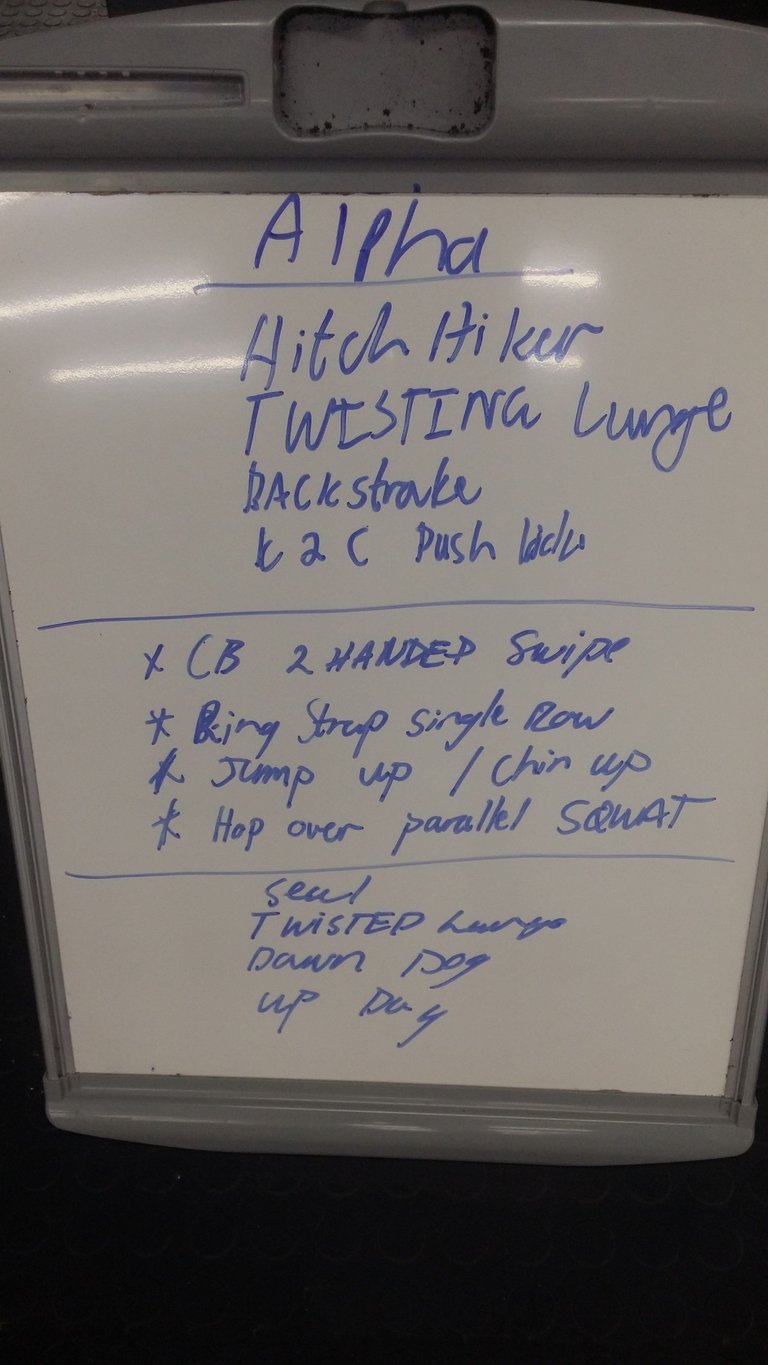 Alpha
Hitch Hiker
TWISTING Lunge
BACKstroke
K 2 C Push kick
* CB 2 HANDED Swipe
* Ring Strap single Row
* Jump up / chin up
* Hop over parallel SQUAT
seal
TWISTED Lunge
Down Dog
up Dog